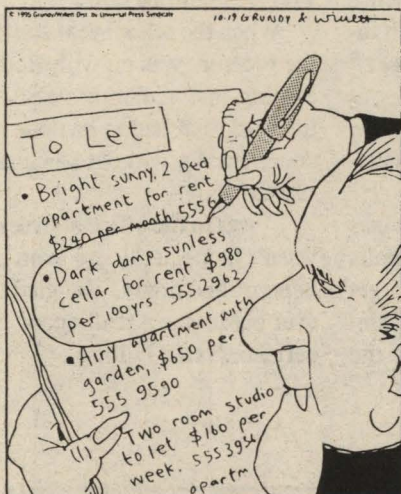 © 1995 Grundy/Willett Dist. by Universal Press Syndicate
10-19 GRUNDY & Willett
To Let
• Bright sunny. 2 bed
apartment for rent
$240 per month 555
• Dark damp sunless
cellar for rent $980
per 100yrs 555 2962
• Airy apartment with
garden, $650 per
555 9590
Two room studio
to let $160 per
week. 555 395
apartm